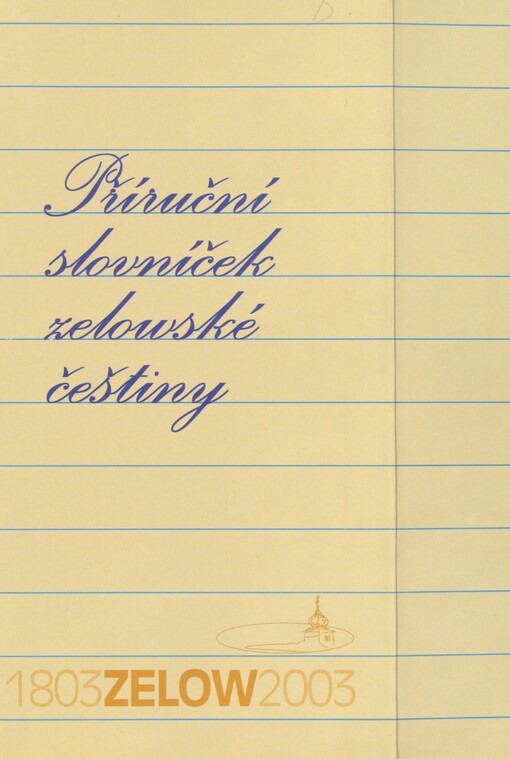 Příruční
slovníček
zelowské
češtiny
1803ZELOW2003